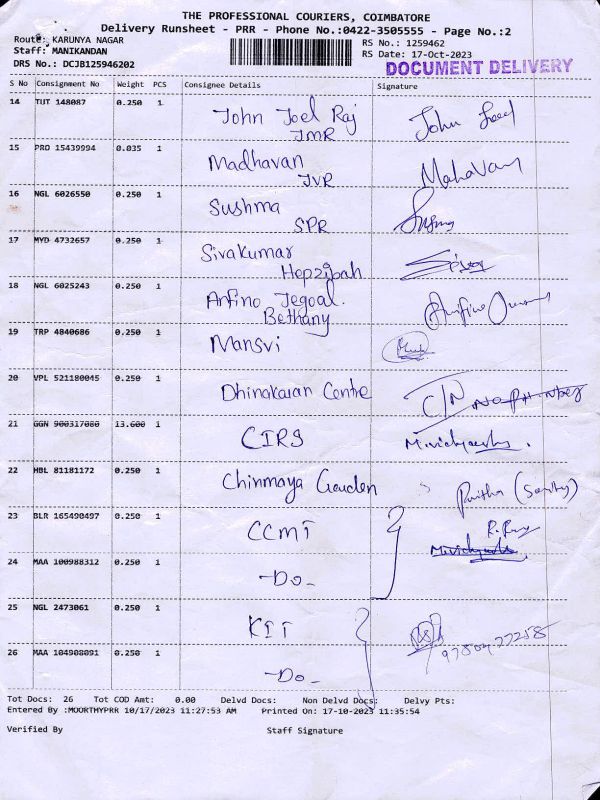 THE PROFESSIONAL COURIERS, COIMBATORE
Delivery Runsheet - PRR - Phone No.:0422-3505555 - Page No.:2
Route: KARUNYA NAGAR
RS No.: 1259462
Staff: MANIKANDAN
RS Date: 17-Oct-2023
DRS No.: DCJB125946202
DOCUMENT DELIVERY
S No Consignment No Weight PCS Consignee Details Signature
14 TUT 148087 0.250 1 John Joel Raj John
JMR
15 PRO 15439994 0.035 1 Madhavan
JVR
16 NGL 6026550 0.250 1 Sushma
SPR
17 MYD 4732657 0.250 1 Sivakumar
Hepzibah
18 NGL 6025243 0.250 1 Anfino Jegoal.
Bethany
19 TRP 4840686 0.250 1 Mansvi
20 VPL 521180045 0.250 1 Dhinakaran Centre
21 GGN 900317080 13.600 1 CIRS
22 HBL 81181172 0.250 1 Chinmaya Garden
23 BLR 165490497 0.250 1 CCMT
24 MAA 100988312 0.250 1 -Do-
25 NGL 2473061 0.250 1 KIT
26 MAA 104908091 0.250 1 -Do-
Tot Docs: 26 Tot COD Amt: 0.00 Delvd Docs: Non Delvd Docs: Delvy Pts:
Entered By :MOORTHYPRR 10/17/2023 11:27:53 AM Printed On: 17-10-2023 11:35:54
Verified By Staff Signature